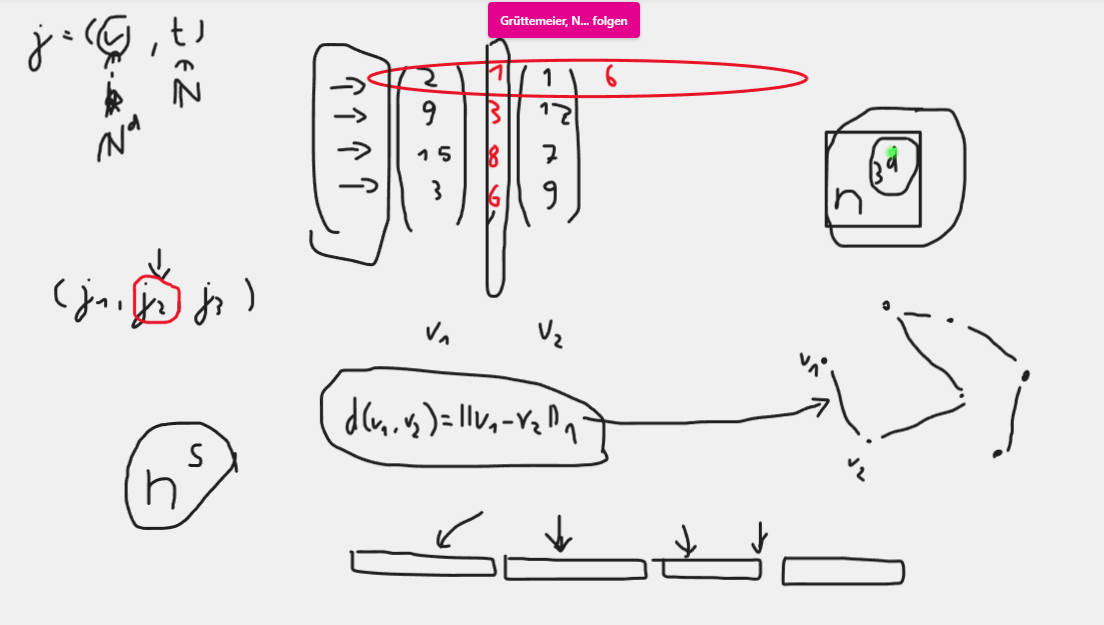 Grüttemeier, N... folgen
j = (v, t)
ℕ^d
ℕ
2 1 1 6
9 3 12
15 8 7
3 6 9
n 3^d
(j_1, j_2 j_3)
v_1 v_2
d(v_1, v_2) = ||v_1 - v_2||_1
v_1
v_2
n^s